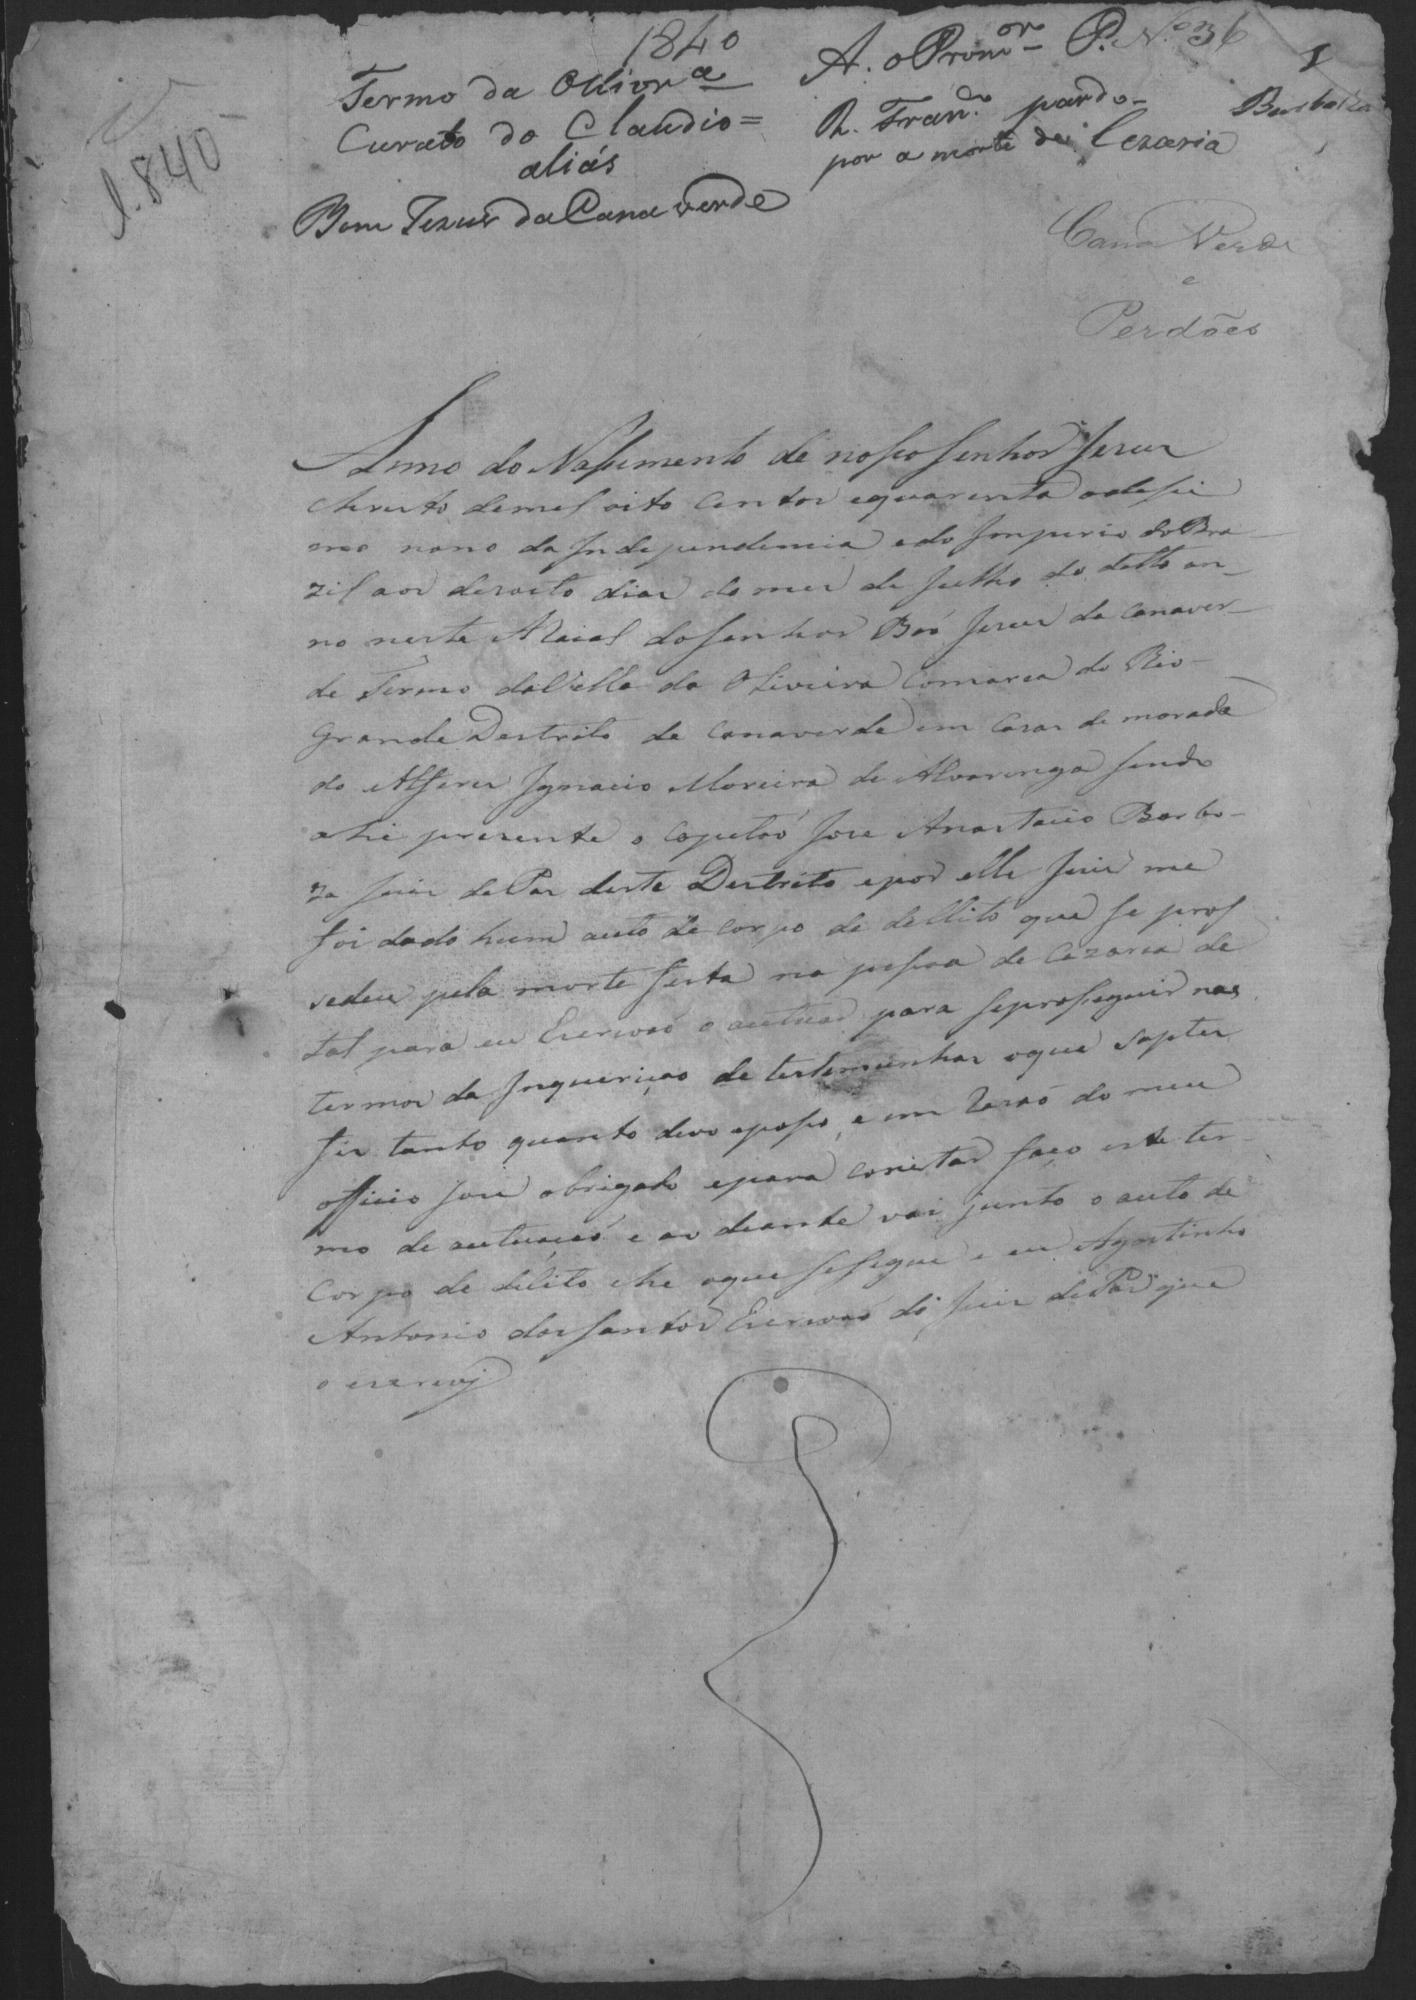 1840
Termo da Olivr.ª
Curato do Claudio=
aliás
Bom Jezus da Cana verde
1.840
A. o Promor. P. N.º 36
1
R. Fran.do pardo- Barboza
por a morte de Cezaria
Cana Verde
e
Perdões
Anno do Nassimento de nosso senhor Jesus
Christo demel oito centos equarenta odessi
mo nono da Independencia edo Imperio do Bra
zil aos dezoito dias do mes de Julho do ditto an_
no neste Araial dosenhor Bão Jesus da canaver_
de Termo daVilla da Oliveira Comarca do Rio
Grande Destrito de Canaverde em Cazas de morada
do Alferes Ignacio Moreira de Alvarenga sendo
ahi prezente o Capitão Jose Anastacio Barbo-
za Juis de Pas deste Destrito epor elle Juis me
foi dado hum auto de corpo de dellito que se pros
sedeu pela morte feita na pessoa de Cezaria de
tal para eu Escrivão o autuar para seproseguir nos
termos da Inquerição de testemunhas oque
fis tanto quanto devo eposso, e em Rezão do meu
officio sou obrigado epara constar faço este ter
mo de autuação e ao deante vai junto o auto de
Corpo de delito he oque sesegue e eu Agostinho
Antonio dos santos Escrivão do Juis dePas que
o escrevj